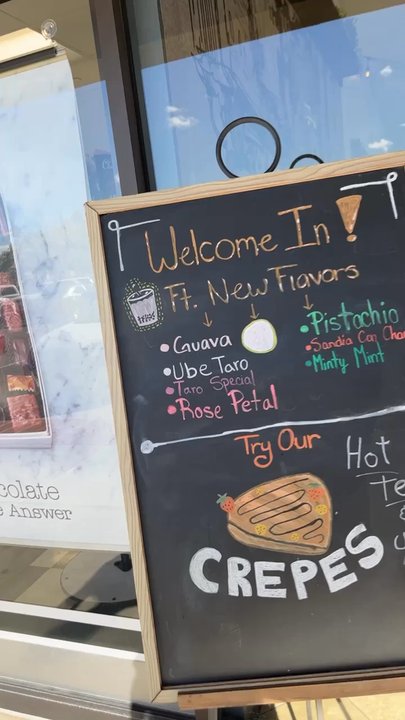 Welcome In!
Ft. New Flavors
Guava
Ube Taro
Taro Special
Rose Petal
Pistachio
Sandia Con
Minty Mint
Try Our
CREPES
Hot
Answer